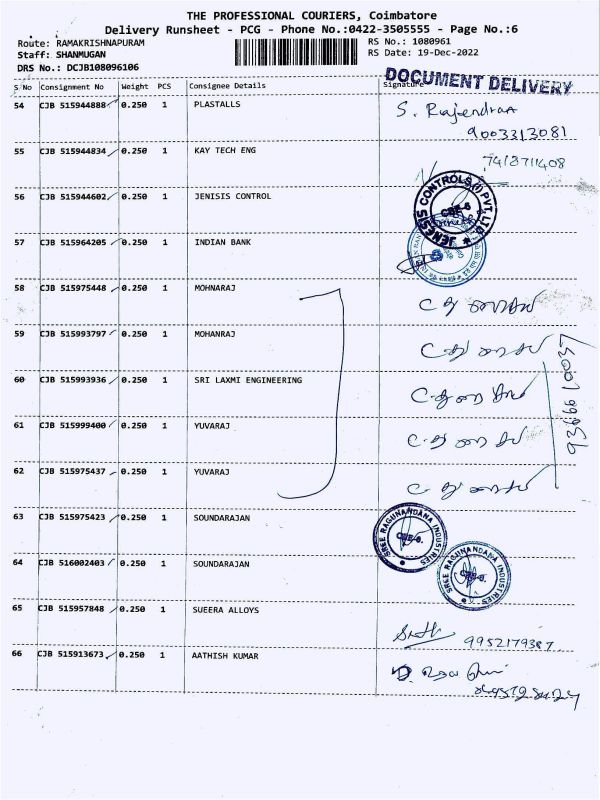 THE PROFESSIONAL COURIERS, Coimbatore
Delivery Runsheet - PCG - Phone No.:0422-3505555 - Page No.:6
Route: RAMAKRISHNAPURAM RS No.: 1080961
Staff: SHANMUGAN RS Date: 19-Dec-2022
DRS No.: DCJB108096106
DOCUMENT DELIVERY
S No Consignment No Weight PCS Consignee Details Signature
54 CJB 515944888 0.250 1 PLASTALLS S. Rajendran
9003313081
55 CJB 515944834 0.250 1 KAY TECH ENG 7418711408
56 CJB 515944602 0.250 1 JENISIS CONTROL JENESIS CONTROLS (I) PVT LTD CBE-6
57 CJB 515964205 0.250 1 INDIAN BANK
58 CJB 515975448 0.250 1 MOHNARAJ
59 CJB 515993797 0.250 1 MOHANRAJ
60 CJB 515993936 0.250 1 SRI LAXMI ENGINEERING
61 CJB 515999400 0.250 1 YUVARAJ
62 CJB 515975437 0.250 1 YUVARAJ
9366610037
63 CJB 515975423 0.250 1 SOUNDARAJAN SREE RAGUNANDANA INDUSTRIES CBE-6.
64 CJB 516002403 0.250 1 SOUNDARAJAN SREE RAGUNANDANA INDUSTRIES CBE-6.
65 CJB 515957848 0.250 1 SUEERA ALLOYS 9952179387
66 CJB 515913673 0.250 1 AATHISH KUMAR